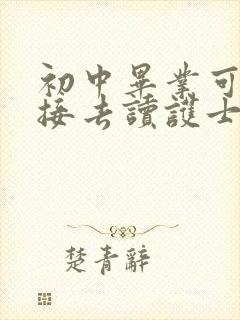 初中畢業可
接去讀護士
楚青辭